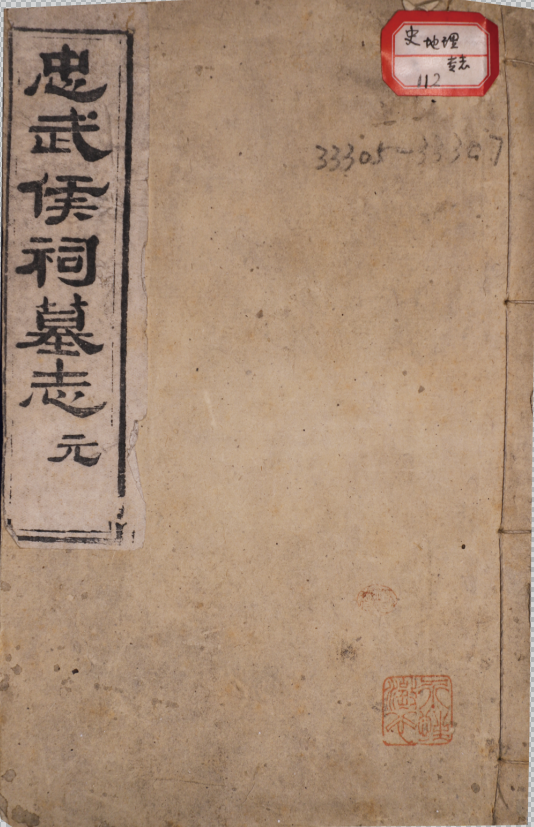 忠武侯祠墓志元
史地理
专志
112
33305-33307